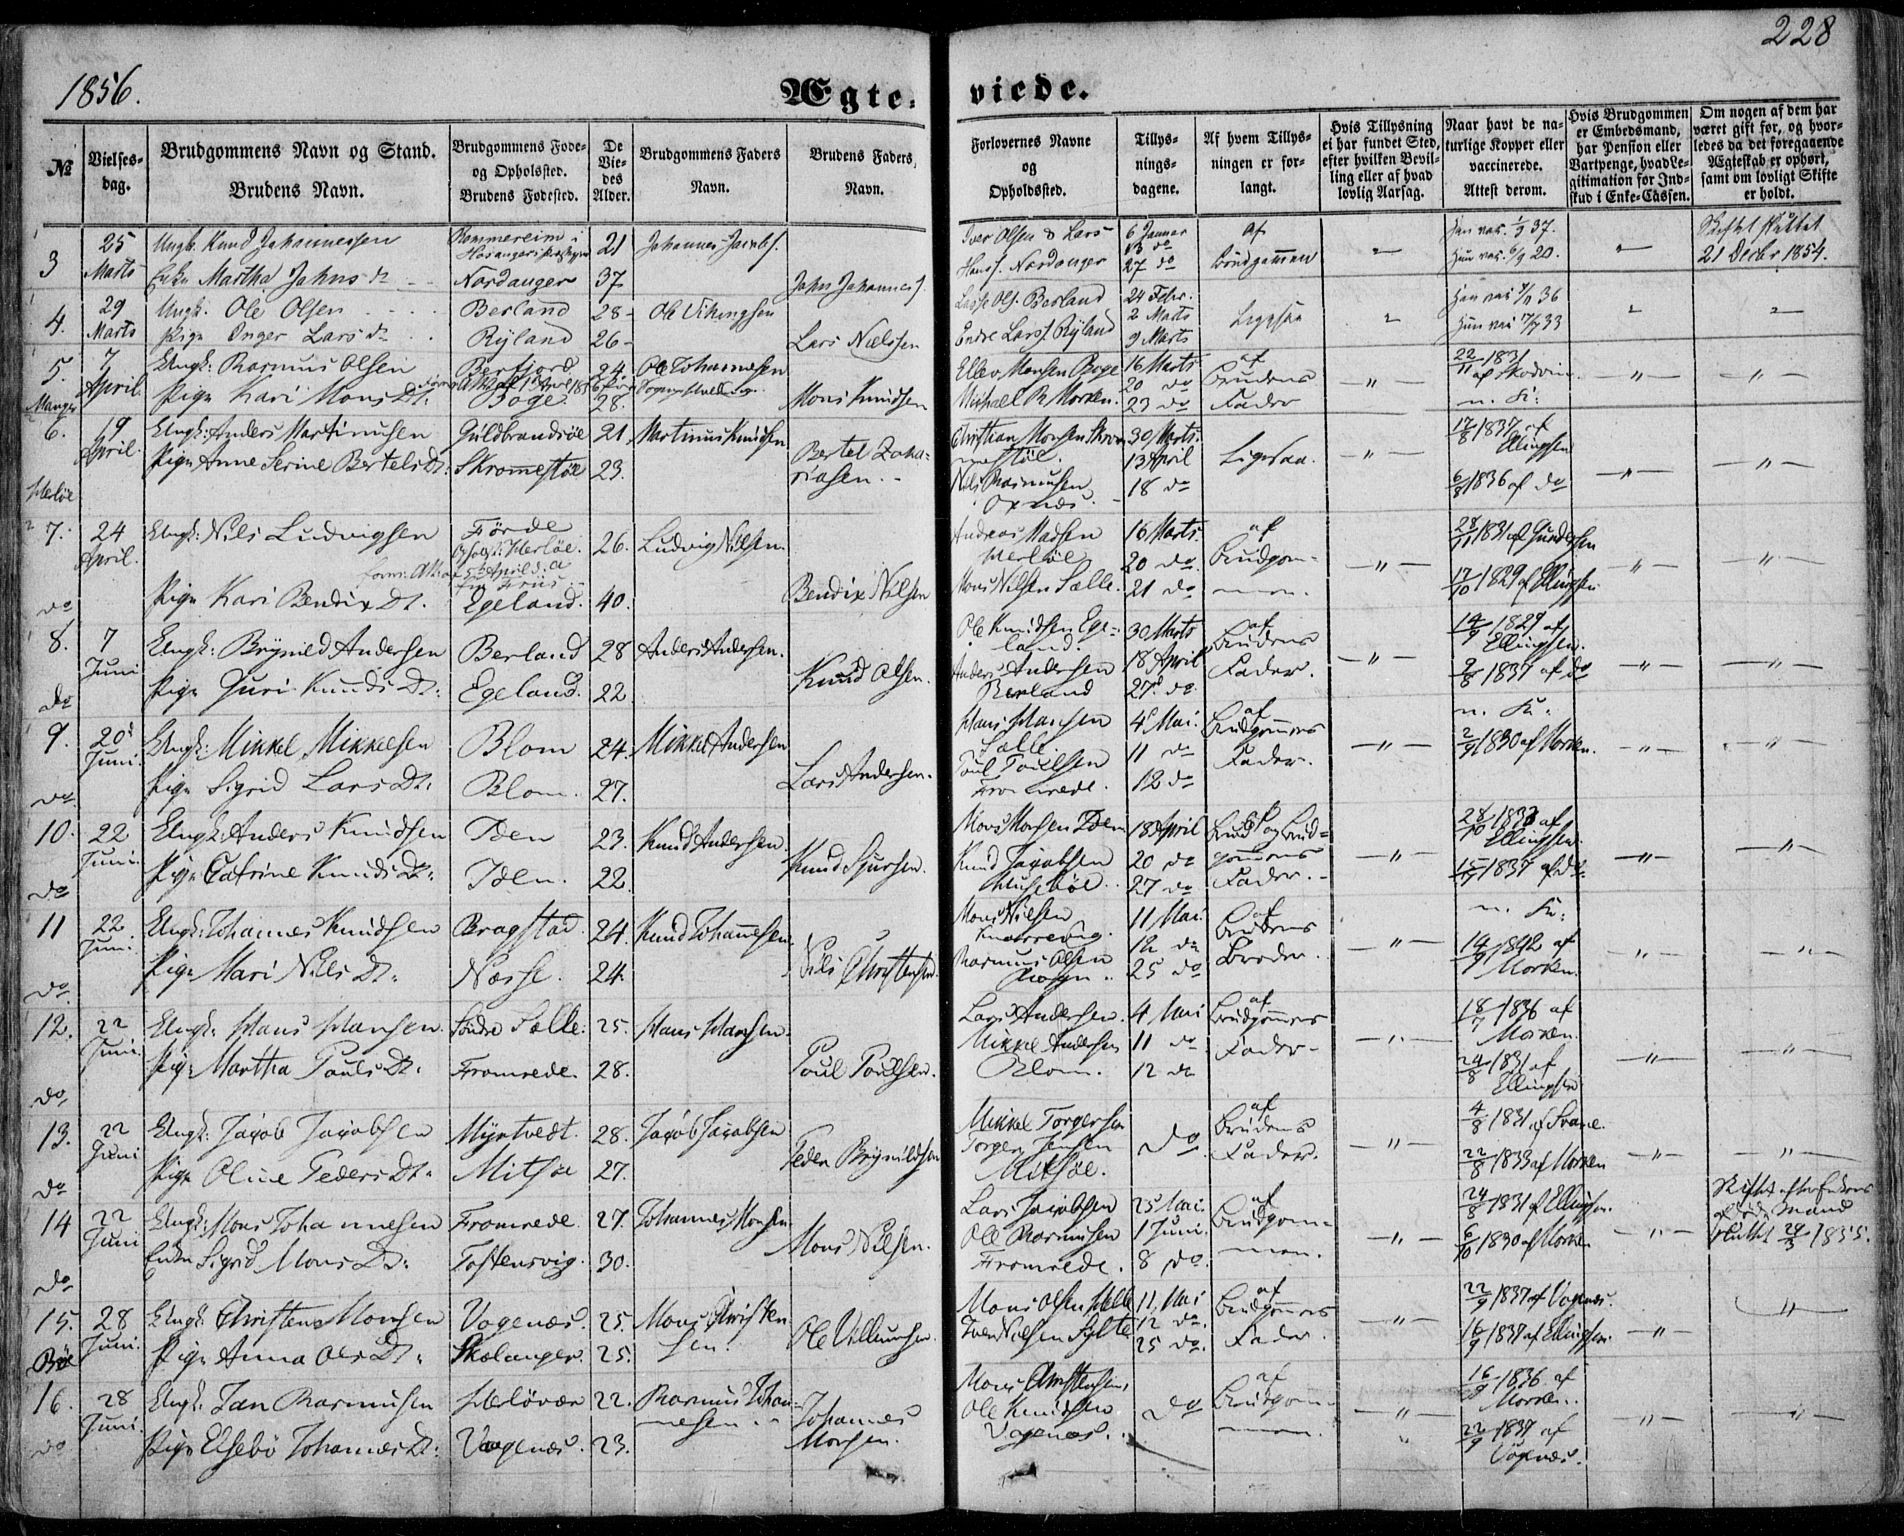 228
1856.
Ægte- viede.
№
Vielses-
dag.
Brudgommens Navn og Stand.
Brudens Navn.
Brudgommens Føde-
og Opholdssted.
Brudens Fødested.
De
Vie-
des
Alder.
Brudgommens Faders
Navn.
Brudens Faders,
Navn.
Forlovernes Navne
og
Opholdssted.
Tillys-
nings-
dagene.
Af hvem Tillys-
ningen er for-
langt.
Hvis Tillysning
ei har fundet Sted,
efter hvilken Bevil-
ling eller af hvad
lovlig Aarsag.
Naar havt de na-
turlige Kopper eller
vaccinerede.
Attest derom.
Hvis Brudgommen
er Embedsmand,
har Pension eller
Vartpenge, hvad Le-
gitimation for Ind-
skud i Enke-Cassen.
Om nogen af dem har
været gift før, og hvor-
ledes da det foregaaende
Ægteskab er ophørt,
samt om lovligt Skifte
er holdt.
3 25 Marts
Ungk. Knud Johannessen 21 Johannes Jacobs.
Enke Martha Johns d. Nordanger 37 John Johannes.
Iver Olsen & Lars
Hans. Nordanger
6 Januar
13 do
27 do
af
Brudgommen
Skiftet sluttet
21 Decbr 1854.
4. 29 Marts
Ungk. Ole Olsen Berland 28
Pige Inger Lars d. Ryland 26 Lars Nielssen
Lasse Ols. Berland
Endre Lars. Ryland
24 Febr.
2 Marts
9 Marts
Ligesaa
5. 7 April
Manger
Ungk: Rasmus Olsen 24. Ole Johannesen
Pige Kari Mons Dt. Boge 28. Mons Knudsen
Ellev Monsen Boge
Michael R. Morken.
16 Marts
20 do
23 do
af
Brudens
Fader
n. K:
6. 19 April.
Herløe
Ungk: Anders Martinusen Guldbrandsøe 21. Martinus Knudsen
Pige Anne Serine Bertels Dt. Skrommesøe 23. Bertel Zaha-
riasen.
Nils Rasmusen
30 Marts
13 April
18 do
Ligesaa.
17/8 1837 af
Ellingsen
6/8 1836 af do
7. 24 April.
do
Ungk: Nils Ludvigsen Førde 26. Ludvig Nilsen.
Pige Kari Bendix Dt. Egeland. 40. Bendix Nilsen
Andreas Madsen
Herløe
Mons Nilsen Sælle.
16 Marts
20 do
21 do
af
Brudgom-
men.
28/11 1831 af Gundersen
17/10 1829 af Ellingsen
8. 7 Juni
do
Ungk: Brynild Andersen Berland 28 Anders Andersen.
Pige Guri Knuds Dt: Egeland. 22. Knud Olsen.
Ole Knudsen Ege-
land.
Anders Andersen
Berland
30 Marts
18 April
27 do
af
Brudens
Fader.
14/9 1829 af
Ellingsen.
2/8 1837 af do
9. 20 Juni.
do
Ungk: Mikkel Mikkelsen Blom 24. Mikkel Andersen
Pige Sigrid Lars Dt: Blom. 27. Lars Andersen.
Hans Hansen
Sælle
Poul Poulsen
Fromrede.
4 Mai.
11 do
12 do
af
Brudgommens
Fader.
n. K:
2/9 1830 af Morken.
10. 22 Juni.
do
Ungk: Anders Knudsen Iden 23. Knud Andersen.
Pige Catrine Knuds Dt: Iden. 22. Knud Sjursen.
Mons Monsen Iden
Knud Jacobsen
Husebøe.
18 April
20 do
27 do
Fader.
28/10 1833 af
Ellingsen.
11 22 Juni.
do
Ungk: Johannes Knudsen Bragstad 24. Knud Johannesen.
Pige Mari Nils Dt: Næsse. 24. Nils Christensen.
Mons Nilsen
Rasmus Olsen
11 Mai.
12 do
25 do
af
Brudens
Broder.
n. K:
14/9 1842 af
Morken.
12. 22 Juni.
do
Ungk: Hans Hansen. Søndre Sælle. 25. Hans Hansen.
Pige Martha Pouls Dt. Fromrede. 28. Poul Poulsen.
Lars Andersen.
Mikkel Andersen
Blom.
4 Mai
11 do
12 do
af
Brudgommens
Fader.
18/7 1836 af
Morken.
24/8 1831 af
Ellingsen
13. 22 Juni
do
Ungk: Jacob Jacobsen Myrtvedt. 28. Jacob Jacobsen
Pige Oline Peders Dt. Mitsøe 27. Peder Brynildsen
Mikkel Torgersen
Torger Jensen
Mitsøe.
do
af
Brudens
Fader.
4/8 1831 af Svane.
22/8 1833 af Morken
14 22 Juni
do
Ungk: Mons Johannesen Fromrede. 27. Johannes Monsen.
Enke Sigrid Mons Dt: Tostensvig. 30. Mons Nilsen.
Lars Jacobsen
Ole Rasmusen
Fromrede.
25 Mai.
1 Juni.
8 do.
af
Brudgom-
men.
24/8 1831 af Ellingsen.
6/10 1830 af Morken
15. 28 Juni.
Bøe
Ungk: Christen Monsen Vogenæs. 25. Mons Christen
sen.
Pige Anna Oles Dt. Skælanger. 25. Ole Villumsen.
Mons Olsen Helle
Iver Nielsen Sylte
11 Mai
12 do.
25 do.
af
Brudgommens
Fader.
22/9 1837 af Vogenæs.
16/9 1837 af Ellingsen.
16. 28 Juni.
do
Ungk. Jan Rasmusen Herløvær 22. Rasmus Johan-
nesen.
Pige Elsebe Johannes Dt. Vogenæs. 23. Johannes
Monsen.
Mons Christensen,
Ole Knudsen
Vogenæs.
do
af
Brudgom-
men.
16/9 1836 af
Morken.
22/9 1837 af
Vogenæs.